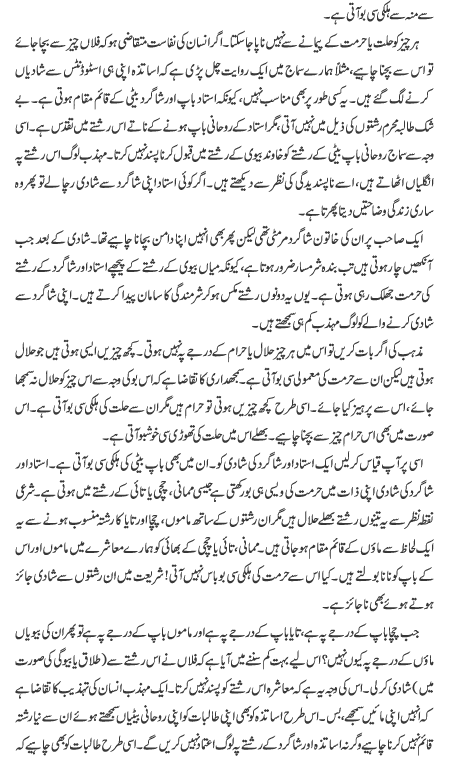 سے منہ سے ہلکی سی بو آتی ہے۔
ہر چیز کو حلت یا حرمت کے پیمانے سے نہیں ناپا جا سکتا۔ اگر انسان کی نفاست متقاضی ہو کہ فلاں چیز سے بچا جائے
تو اس سے بچنا چاہیے، مثلاً ہمارے سماج میں ایک روایت چل پڑی ہے کہ اساتذہ اپنی ہی اسٹوڈنٹس سے شادیاں
کرنے لگ گئے ہیں۔ یہ کسی طور پر بھی مناسب نہیں، کیونکہ استاد باپ اور شاگرد بیٹی کے قائم مقام ہوتی ہے۔ بے
شک طالبہ محرم رشتوں کی ذیل میں نہیں آتی، مگر استاد کے روحانی باپ ہونے کے ناتے اس رشتے میں تقدس ہے۔ اسی
وجہ سے سماج روحانی باپ بیٹی کے رشتے کو خاوند بیوی کے رشتے میں قبول کرنا پسند نہیں کرتا۔ مہذب لوگ اس رشتہ پہ
انگلیاں اٹھاتے ہیں، اسے ناپسندیدگی کی نظر سے دیکھتے ہیں۔ اگر کوئی استاد اپنی شاگرد سے شادی رچا لے تو پھر وہ
ساری زندگی وضاحتیں دیتا پھرتا ہے۔
ایک صاحب پر ان کی خاتون شاگرد مر مٹی تھی لیکن پھر بھی انہیں اپنا دامن بچانا چاہیے تھا۔ شادی کے بعد جب
آنکھیں چار ہوتی ہیں تب بندہ شرمسار ضرور ہوتا ہے، کیونکہ میاں بیوی کے رشتے کے پیچھے استاد اور شاگرد کے رشتے
کی حرمت جھلک رہی ہوتی ہے۔ یوں یہ دونوں رشتے مکس ہو کر شرمندگی کا سامان پیدا کرتے ہیں۔ اپنی شاگرد سے
شادی کرنے والے کو لوگ مہذب کم ہی سمجھتے ہیں۔
مذہب کی اگر بات کریں تو اس میں ہر چیز حلال یا حرام کے درجے پہ نہیں ہوتی۔ کچھ چیزیں ایسی ہوتی ہیں جو حلال
ہوتی ہیں لیکن ان سے حرمت کی معمولی سی بو آتی ہے۔ سمجھداری کا تقاضا ہے کہ اس بو کی وجہ سے اس چیز کو حلال نہ سمجھا
جائے، اس سے پرہیز کیا جائے۔ اسی طرح کچھ چیزیں ہوتی تو حرام ہیں مگر ان سے حلت کی ہلکی سی بو آتی ہے۔ اس
صورت میں بھی اس حرام چیز سے بچنا چاہیے۔ بھلے اس میں حلت کی تھوڑی سی خوشبو آتی ہے۔
اسی پر آپ قیاس کر لیں ایک استاد اور شاگرد کی شادی کو۔ ان میں بھی باپ بیٹی کی ہلکی سی بو آتی ہے۔ استاد اور
شاگرد کی شادی اپنی ذات میں حرمت کی ویسی ہی بو رکھتی ہے جیسی ممانی، چچی یا تائی کے رشتے میں ہوتی ہے۔ شرعی
نقطہ نظر سے یہ تینوں رشتے بھلے حلال ہیں مگر ان رشتوں کے ساتھ ماموں، چچا اور تایا کا رشتہ منسوب ہونے سے یہ
ایک لحاظ سے ماؤں کے قائم مقام ہو جاتی ہیں۔ ممانی، تائی یا چچی کے بھائی کو ہمارے معاشرے میں ماموں اور اس
کے باپ کو نانا بولتے ہیں۔ کیا اس سے حرمت کی ہلکی سی بو باس نہیں آتی! شریعت میں ان رشتوں سے شادی جائز
ہوتے ہوئے بھی ناجائز ہے۔
جب چچا باپ کے درجے پہ ہے، تایا باپ کے درجے پہ ہے اور ماموں باپ کے درجے پہ ہے تو پھر ان کی بیویاں
ماؤں کے درجے پہ کیوں نہیں؟ اس لیے بہت کم سننے میں آیا ہے کہ فلاں نے اس رشتے سے (طلاق یا بیوگی کی صورت
میں) شادی کر لی۔ اس کی وجہ ہے کہ معاشرہ اس رشتے کو پسند نہیں کرتا۔ ایک مہذب انسان کی تہذیب کا تقاضا ہے
کہ انہیں اپنی مائیں سمجھے، بس۔ اس طرح اساتذہ کو بھی اپنی طالبات کو اپنی روحانی بیٹیاں سمجھتے ہوئے ان سے نیا رشتہ
قائم نہیں کرنا چاہیے وگرنہ اساتذہ اور شاگرد کے رشتے پہ لوگ اعتماد نہیں کریں گے۔ اسی طرح طالبات کو بھی چاہیے کہ